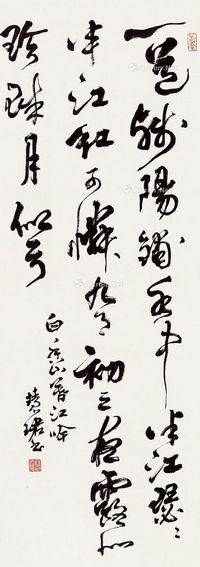 一道殘陽鋪水中半江瑟〻
半江紅可憐九月初三夜露似
珍珠月似弓
白香山暮江吟
书